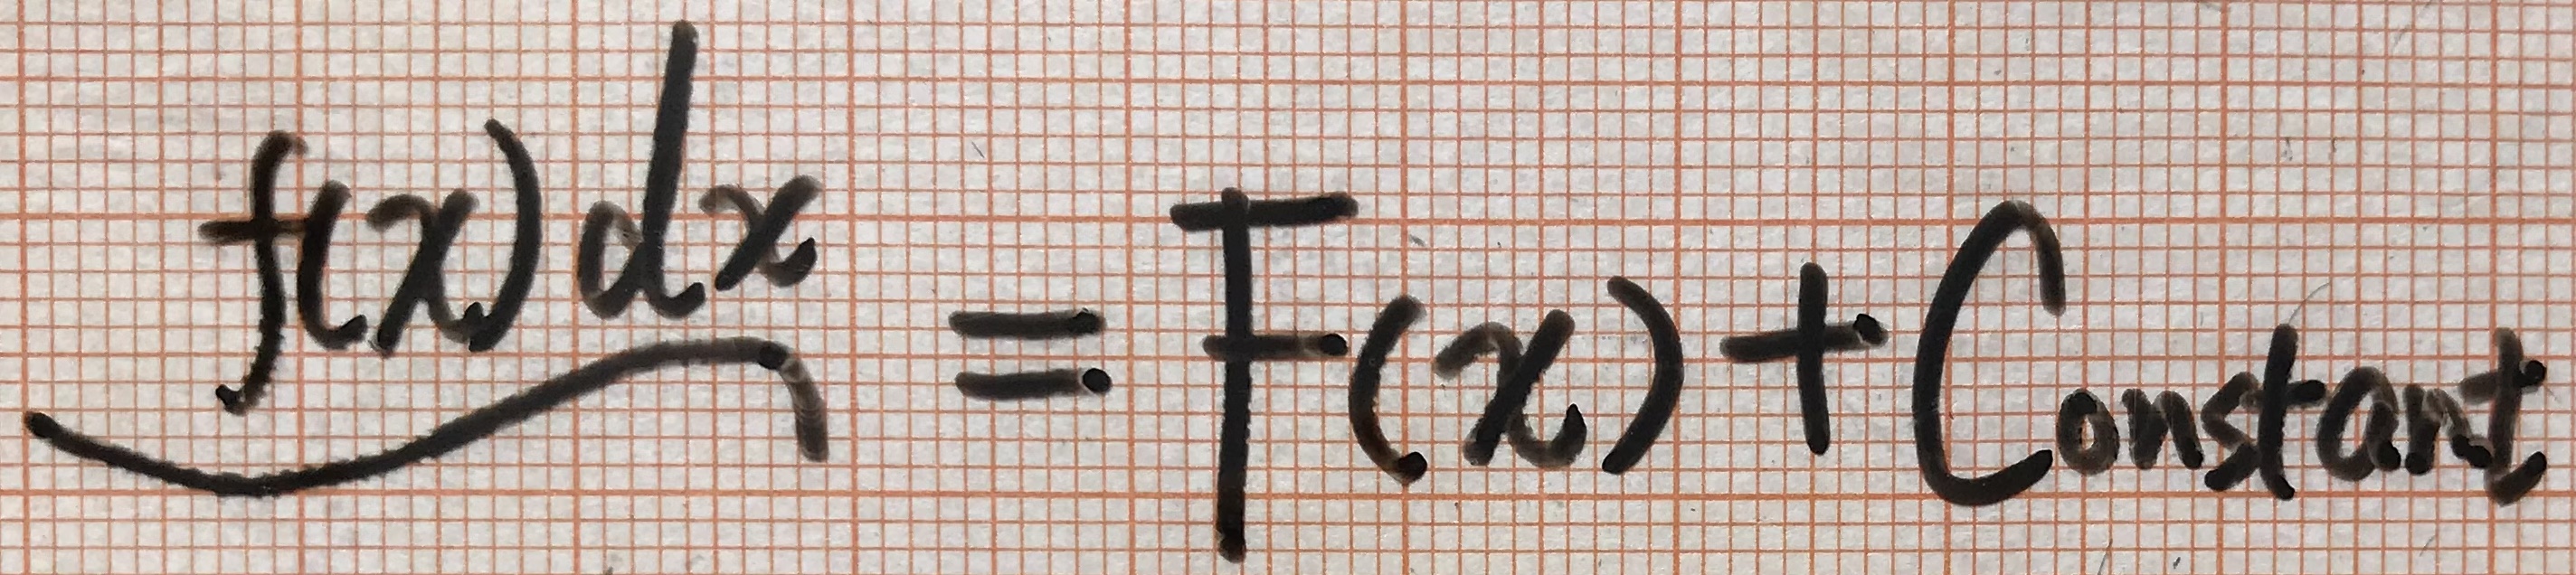 ∫ f(x) dx = F(x) + Constant